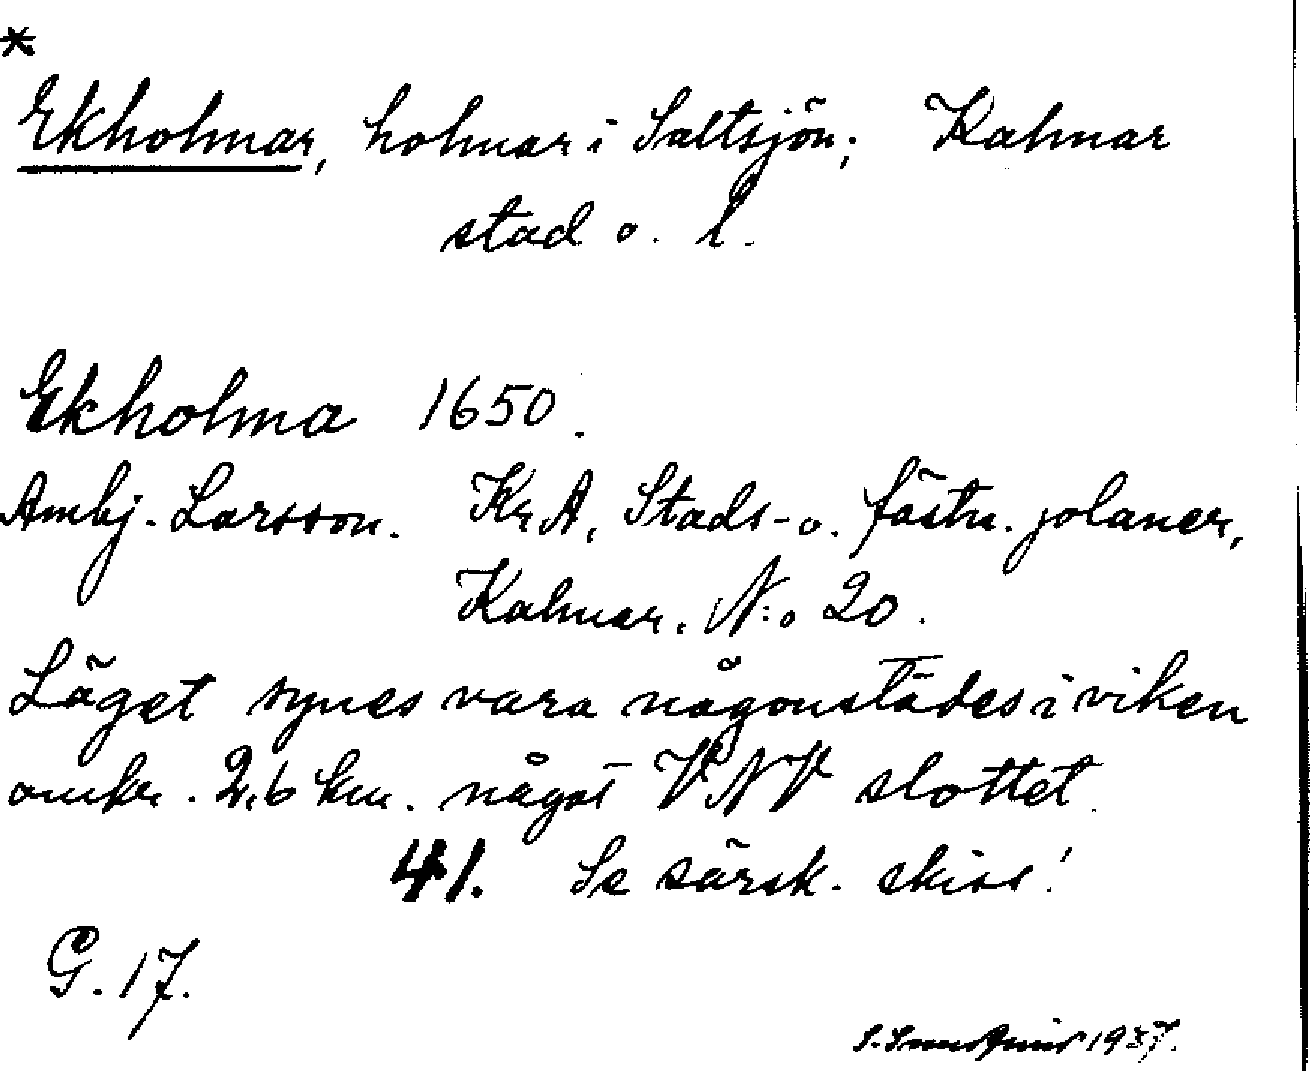 *
Ekholmar, holmar i Saltsjön; Kalmar
stad o. l.
Ekholma 1650.
Ambj. Larsson. Kr A, Stads- o. fästn. planer,
Kalmar. N:o 20.
Läget synes vara någonstädes i viken
omkr. 2,6 km. något VNV slottet.
41. Se särsk. skiss!
G. 17.
1937.